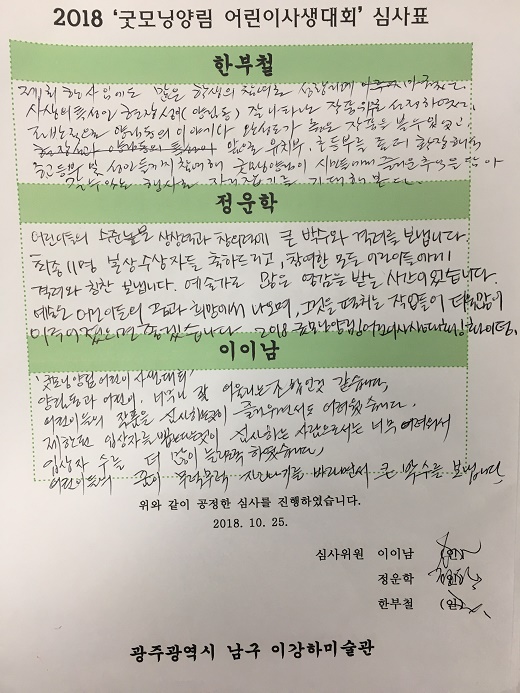 2018 '굿모닝양림 어린이사생대회' 심사표
한부철
제1회 행사임에도 많은 학생의 참여로 성황리에
사생의 특성인 현장성(양림동) 잘 나타나는 작품위주 선정하였고
양림동의 이야기나 완성도가 높은 작품을 볼 수 있었고
유치부, 초등부를 확장해서
중고등부 및 성인들까지 참여해 굿모닝양림이 시민들에게 즐거운 추억을 담아
갈 수 있는 행사로 자리잡기를 기대해 본다.
정운학
어린이들의 수준높은 상상력과 창의력에 큰 박수와 격려를 보냅니다.
최종 11명 입상수상자들 축하드리고, 참여한 모든 어린이들에게
격려와 칭찬 보냅니다. 예술가로 많은 영감을 받는 시간이었습니다.
예술은 어린이들의 꿈과 희망에서 나오며, 그것을 펼치는 작업들이
이어졌으면 좋겠습니다. 2018 굿모닝양림 어린이사생대회 화이팅.
이이남
'굿모닝양림 어린이 사생대회'
양림동과 어린이. 너무나 잘 어울리는 조합인것 같습니다.
어린이들의 작품을 심사하는것이 즐거우면서도 어려웠습니다.
제한된 입상자를 뽑는것이 심사하는 사람으로서는 너무 어려워서
입상자 수를 더 많이 늘려야 하겠습니다.
어린이들의 꿈이 무럭무럭 자라나기를 바라면서 큰 박수를 보냅니다.
위와 같이 공정한 심사를 진행하였습니다.
2018. 10. 25.
심사위원 이이남 (인)
정운학 (인)
한부철 (인)
광주광역시 남구 이강하미술관